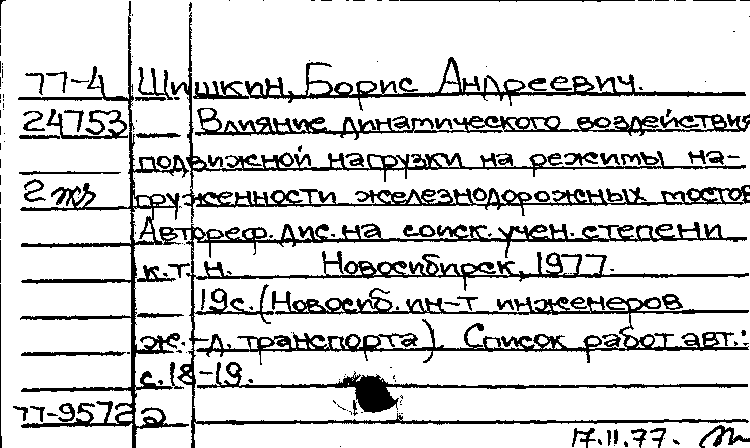 77-4 Шишкин, Борис Андреевич.
24753 Влияние динамического воздействия
подвижной нагрузки на режимы на-
2 экз гружённости железнодорожных мостов
Автореф. дис. на соиск. учен. степени
к.т.н. Новосибирск, 1977.
19с. (Новосиб. ин-т инженеров
ж.-д. транспорта). Список работ авт.:
с.18-19.
77-9572 а
17.11.77.